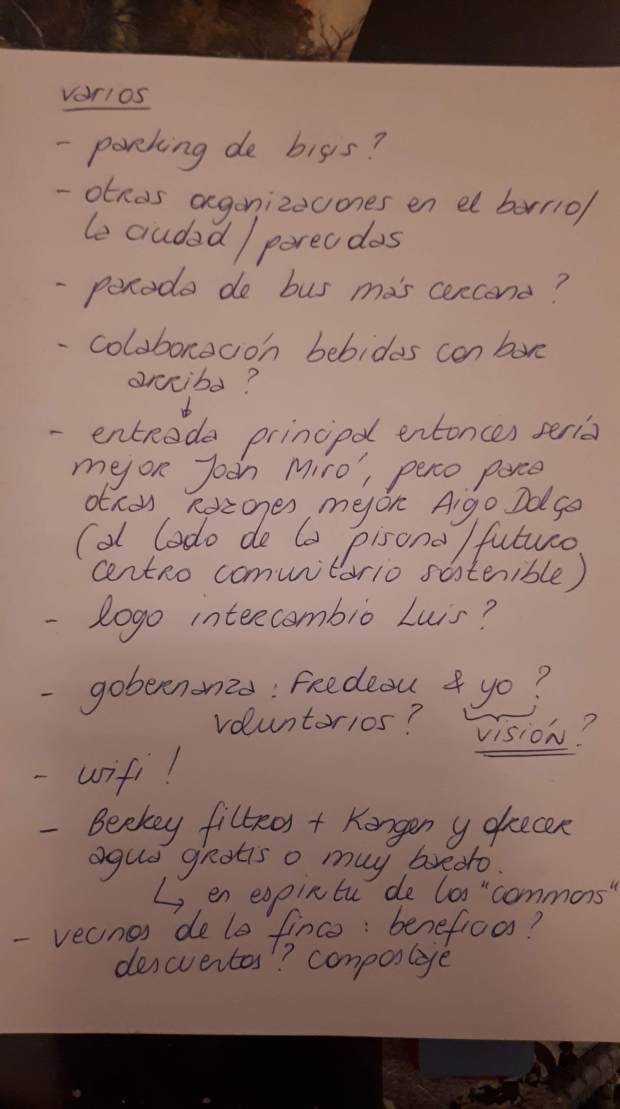 varios
- parking de bicis?
- otras organizaciones en el barrio/
la ciudad / parecidas
- parada de bus más cercana?
- colaboración bebidas con bar
arriba?
- entrada principal entonces sería
mejor Joan Miró, pero para
otras razones mejor Aigo Dolça
(al lado de la pisana/futuro
centro comunitario sostenible)
- logo intercambio Luis?
- gobernanza: Fredeau & yo?
voluntarios? visión?
- wifi!
- Berkey filtros + Kangen y ofrecer
agua gratis o muy barato.
↳ en espiritu de los "commons"
- vecinos de la finca: beneficios?
descuentos? compostaje